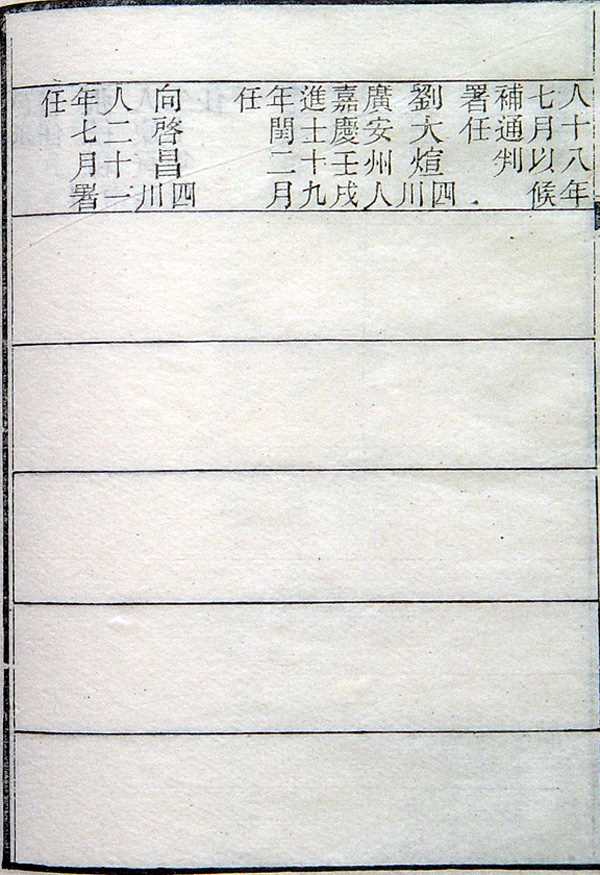 人十八年
七月以候
補通判
署任
劉大煊四川
廣安州人
嘉慶壬戌
進士十九
年閏二月
任
向啓昌四川
人二十一
年七月署
任